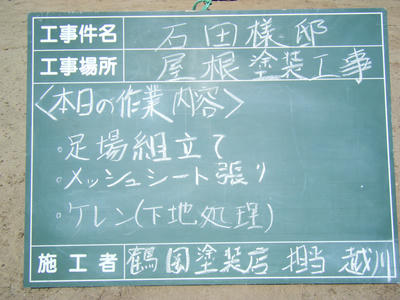 工事件名 石田様邸
工事場所 屋根塗装工事
〈本日の作業内容〉
・足場組立て
・メッシュシート張り
・ケレン(下地処理)
施工者 鶴園塗装店 担当 越川